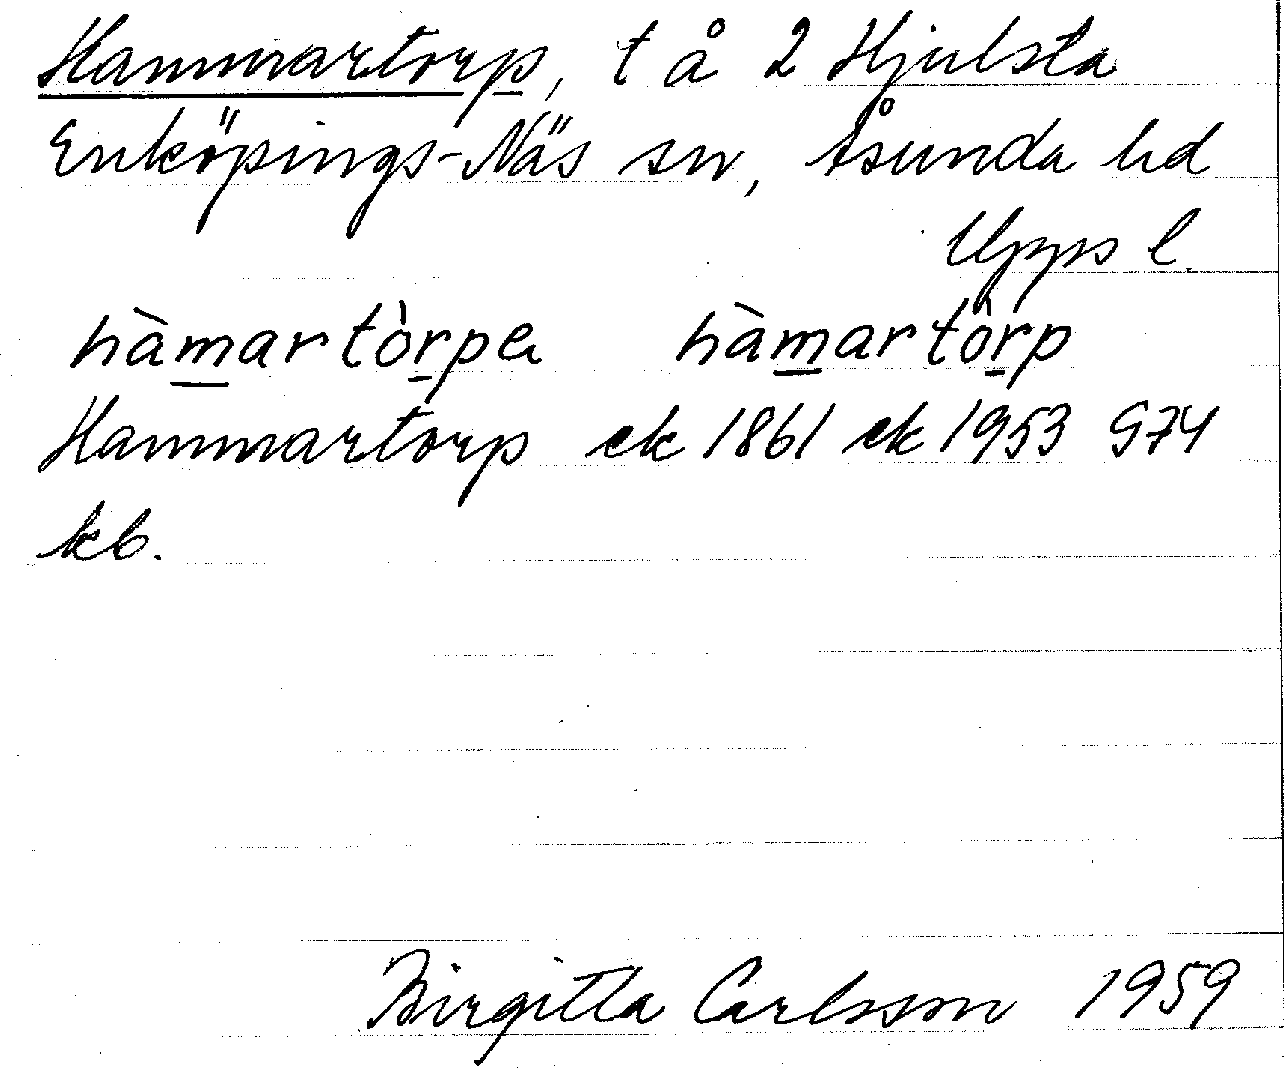 Hammartorp, t å 2 Hjulsta
Enköpings-Näs sn, Åsunda hd
Upps l.
hàmartòrpa hàmartòrp
Hammartorp ek 1861 ek 1953 S74
kb.
Birgitta Carlsson 1959